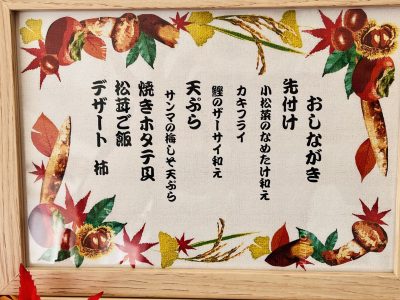 おしながき
先付け
小松菜のなめたけ和え
カキフライ
鰹のザーサイ和え
天ぷら
サンマの梅しそ天ぷら
焼きホタテ貝
松茸ご飯
デザート 柿